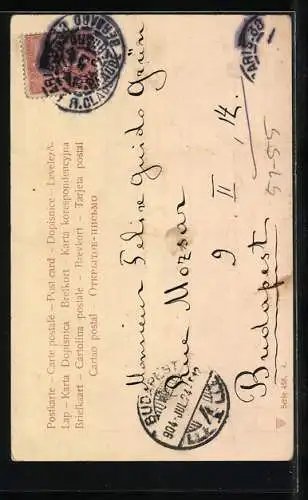 Postkarte – Carte postale – Post card – Dopisnice – Levelező-
Lap – Karta Dopisnica Brefkort – Karta korespondencyjna
Briefkaart – Cartolina postale – Brevkort – Tarjeta postal
Cartao postal ОТКРЫТОЕ ПИСЬМО
Monsieur Felix Guido Grün
Rue Mozsar
9. II. 14.
Budapest
51-55
BUDAPEST
904 JUL
Serie 458